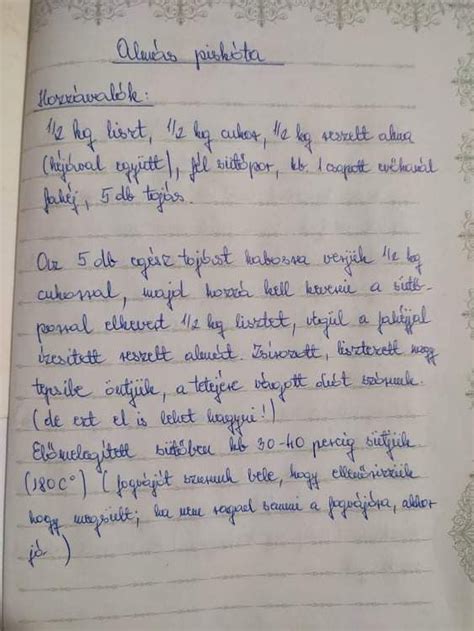 Almás piskóta
Hozzávalók:
1/2 kg liszt, 1/2 kg cukor, 1/2 kg reszelt alma
(héjával együtt), fél sütőpor, kb. 1 csapott evőkanál
fahéj, 5 db tojás.
Az 5 db egész tojást habosra verjük 1/2 kg
cukorral, majd hozzá kell keverni a sütő-
porral elkevert 1/2 kg lisztet, végül a fahéjjal
ízesített reszelt almát. Zsírozott, lisztezett nagy
tepsibe öntjük, a tetejére vágott diót szórunk.
(de ezt el is lehet hagyni!)
Előmelegített sütőben kb 30-40 percig sütjük.
(180C°) (fogvájót szúrunk bele, hogy ellenőrizzük
hogy megsült; ha nem ragad semmi a fogvájóra, akkor
jó.)